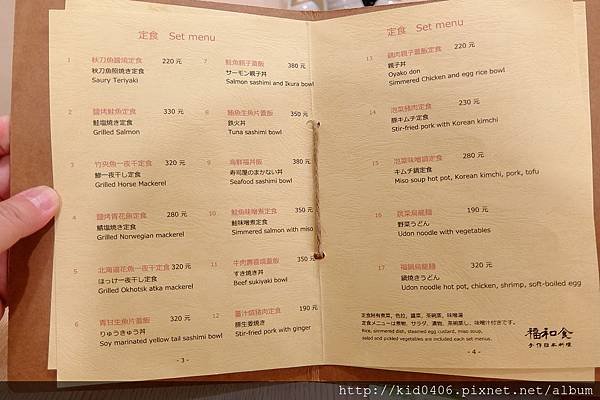 定食 Set menu
1 秋刀魚醬燒定食 220 元
秋刀魚照焼き定食
Saury Teriyaki
2 鹽烤鮭魚定食 330 元
鮭塩焼き定食
Grilled Salmon
3 竹夾魚一夜干定食 320 元
鯵一夜干し定食
Grilled Horse Mackerel
4 鹽烤青花魚定食 280 元
鯖塩焼き定食
Grilled Norwegian mackerel
5 北海道花魚一夜干定食 320 元
ほっけ一夜干定食
Grilled Okhotsk atka mackerel
6 青甘生魚片蓋飯 320 元
りゅうきゅう丼
Soy marinated yellow tail sashimi bowl
7 鮭魚親子蓋飯 380 元
サーモン親子丼
Salmon sashimi and Ikura bowl
8 鮪魚生魚片蓋飯 350 元
鉄火丼
Tuna sashimi bowl
9 海鮮福丼飯 380 元
寿司屋のまかない丼
Seafood sashimi bowl
10 鮭魚味噌煮定食 350 元
鮭味噌煮定食
Simmered salmon with miso
11 牛肉壽喜燒蓋飯 350 元
すき焼き丼
Beef sukiyaki bowl
12 薑汁燒豬肉定食 190 元
豚生姜焼き
Stir-fried pork with ginger
- 3 -
定食 Set menu
13 雞肉親子蓋飯定食 220 元
親子丼
Oyako don
Simmered Chicken and egg rice bowl
14 泡菜豬肉定食 230 元
豚キムチ定食
Stir-fried pork with Korean kimchi
15 泡菜味噌鍋定食 280 元
キムチ鍋定食
Miso soup hot pot, Korean kimchi, pork, tofu
16 蔬菜烏龍麵 190 元
野菜うどん
Udon noodle with vegetables
17 福鍋烏龍麵 320 元
鍋焼きうどん
Udon noodle hot pot, chicken, shrimp, soft-boiled egg
定食附有煮菜、色拉、醬菜、茶碗蒸、味噌湯
定食メニューは煮物、サラダ、漬物、茶碗蒸し、味噌汁付きです。
Rice, simmered dish, steamed egg custard, miso soup,
salad and pickled vegetables are included each set menus.
福和食
手作日本料理
- 4 -
http://kid0406.pixnet.net/album